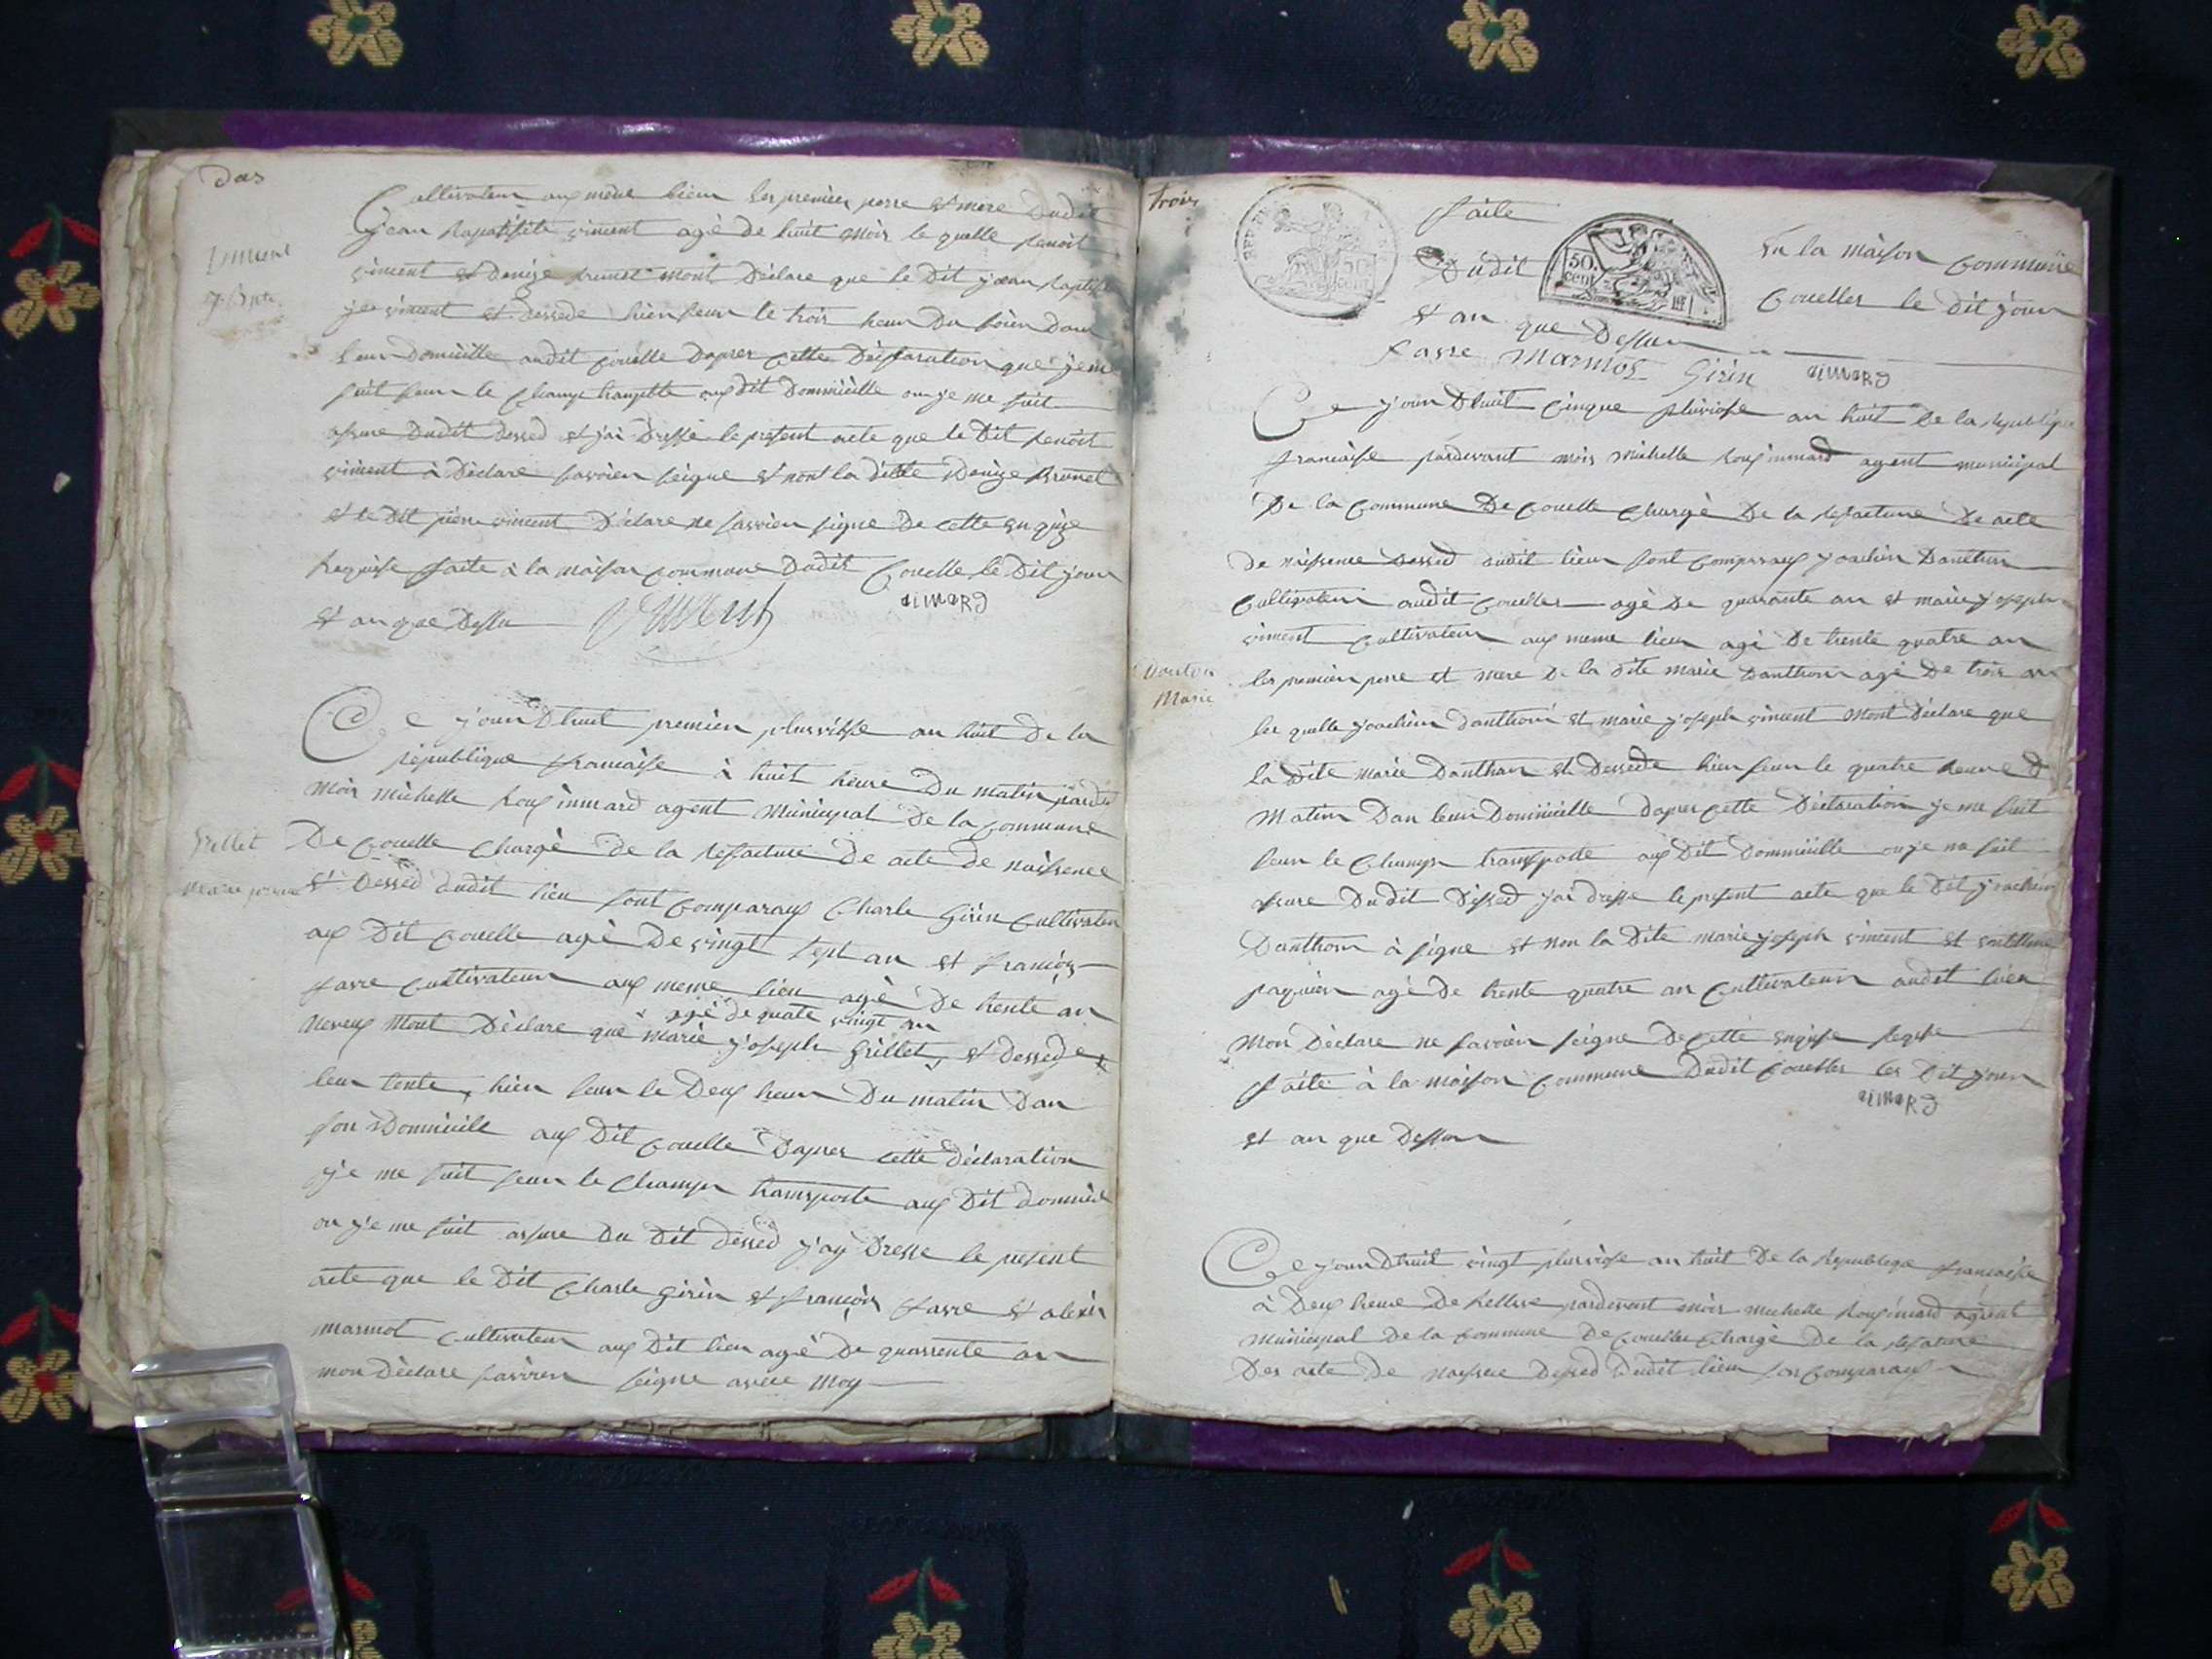 Das
Cultivateur aux meme lieu les premier perre et mere Dudit
jean Baptiste viment agé de huit mois le quelle benoit
viment et Denize brunet mont Déclare que le Dit jean baptiste
viment et dessede hier seur le trois heur Du soier Dan
leur Domicille audit Couelle Daprer cette Déclaration que je me
suit seur le Champ aux dit Dommicille ou je me suit
assure Dudit dessed et j'ai Dressé le present acte que le Dit benoit
viment à Déclare savoier seigne et non la ditte Denize brunet
et le Dit pierre viment Déclare ne savoier signe De cette
faite à la maison commune Dudit Couelle le Dit jour
et an que Dessu
aimard
viment
Ce jourDhuit premier pluvisse an huit De la
republique francaise à huit heure Du matin parde
mois michelle agent Municipal De la Commune
Grillet
De Couelle Chargé De la refacture De acte De naissence
Marie
et Dessed dudit lieu sont Comparaux Charle Girin Cultivateur
aux Dit Couelle agé De vingt sept an et françois
favre Cultivateur aux meme lieu agé De trente an
agé de quate vingt an
neveux Mont Déclare que Marie joseph Grillet, et dessede
leur tente, hier seur le Deux heur Du matin Dan
son Dommicille aux Dit Couelle Daprer cette Déclaration
je me suit seur le Champ transporte aux Dit dommicil
ou je me suit assure Du Dit dessed j'ay Dresse le present
acte que le Dit Charle girin et françois favre et alexis
marmot Cultivateur aux Dit lieu agé De quarrente an
mon Déclare savoier seigne avec Moy
trois
REP. FRA.
50 cent
faite
En la maison Commune
Dudit
50 cent
Couelles le Dit jour
et an que Dessu
favre Marmot Girin aimard
Ce jour Dhuit Cinque pluviose an huit De la republique
francaise pardevant mois michelle agent municipal
De la Commune De Couelle Chargé De la refacture De acte
De naissence Dessed audit lieu sont Comparaux joachin Danthon
Cultivateur audit Couelles agé De quarante an et marie joseph
viment Cultivateur aux meme lieu agé De trente quatre an
Marie
les premier perre et mere De la dite marie Danthon agé De trois an
les quelle joachin danthon et marie joseph viment Mont Déclare que
la Dite marie Danthon et Dessede hier seur le quatre heure D
Matin Dan leur Dommicille Daprer cette Déclaration je me suit
seur le Champ transporte aux Dit Dommicille ou je me suit
assure Du dit Dessed j'ai dresse le present acte que le Dit joachin
Danthon à signe et non la Dite marie joseph viment et
paquier agé De trente quatre an Cultivateur audit lieu
Mon Déclare ne savoier seigne De cette
faite à la maison Commune Dudit Couelles les Dit jour
aimard
et an que Dessu
Ce jour Dhuit vingt pluviose an huit De la Republique francaise
à Deux heure De pardevent mois michelle agent
Municipal De la Commune De Couelles Chargé De la refature
Des acte De naissence Dessed Dudit lieu son Comparaux